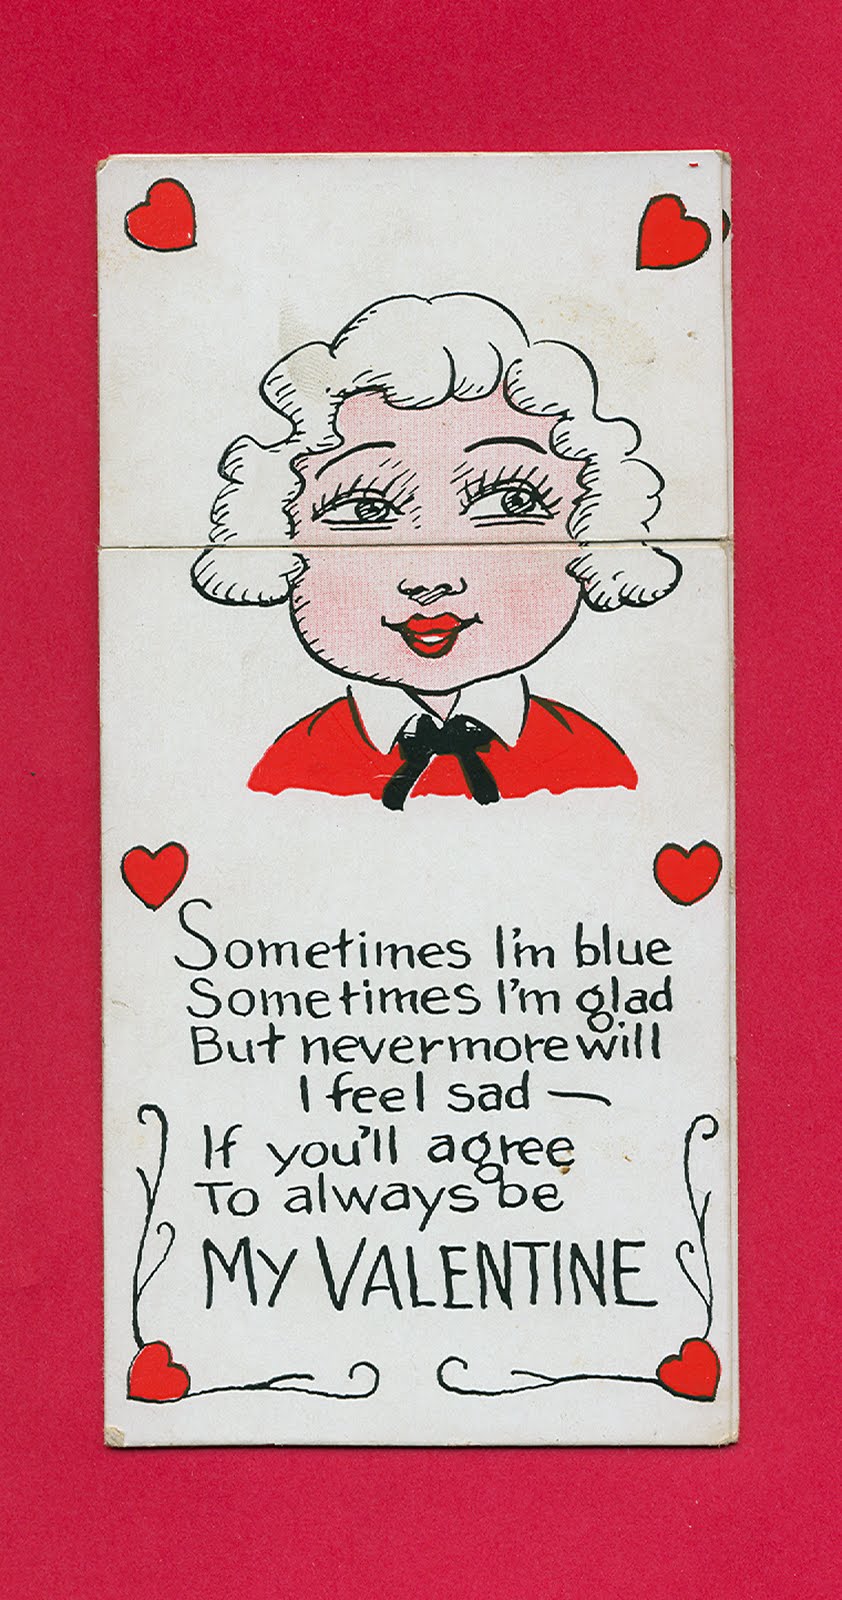 Sometimes I'm blue
Sometimes I'm glad
But nevermore will
I feel sad —
If you'll agree
To always be
MY VALENTINE